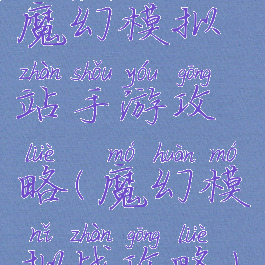 魔幻模拟
zhàn shǒu yóu gōng
站手游攻
lüè mó huàn mó
略(魔幻模
nǐ zhàn gōng lüè
拟战攻略)